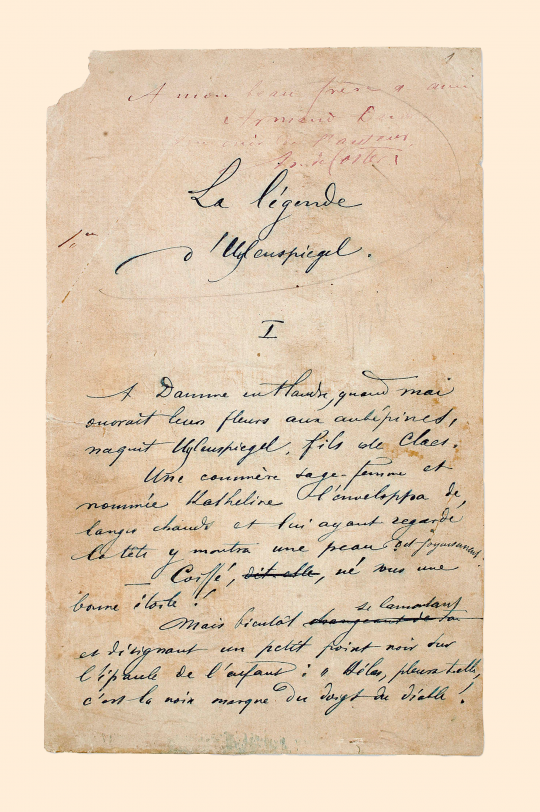 1
A mon beau frère & ami
Armand
l'auteur
Ch. de Coster
La légende
d'Uylenspiegel.
I
A Damme en Flandre, quand mai
ouvrait leurs fleurs aux aubépines,
naquit Uylenspiegel, fils de Claes.
Une commère sage-femme et
nommée Katheline l'enveloppa de
langes chauds et lui ayant regardé
la tête y montra une peau
dit joyeusement.
— Coiffé, dit-elle, né sous une
bonne étoile !
se lamentant
Mais bientôt changeant de ton
et désignant un petit point noir sur
l'épaule de l'enfant : « Hélas, pleura-t-elle,
c'est la noire marque du doigt du diable !